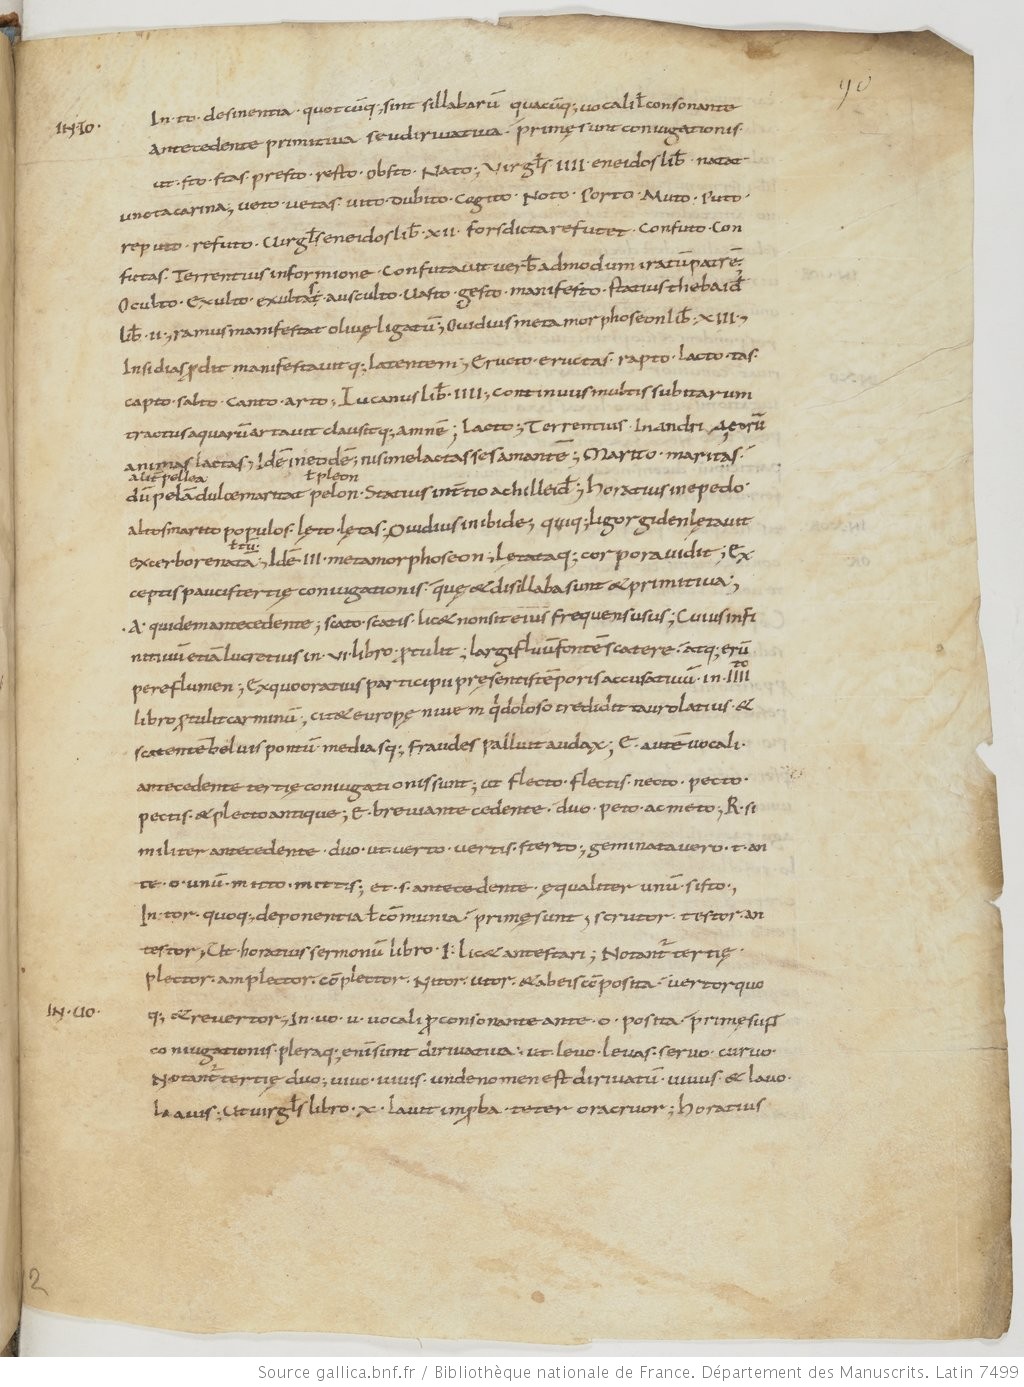 90
IN·TO·
In·to·desinentia·quotcūq;sint sillabarū quacūq;vocali ł consonante
Antecedente primitiva seu dirivativa·primę sunt coniugationis·
ut·sto·stas·presto·resto·obsto·Nato;Virgłs IIII·eneidos lib̄·natat
uncta carina;veto·vetas·uito·Dubito·Cogito·Noto·Porto·Muto·Puto·
reputo·refuto·Virgłs eneidos lib̄·XII·fors dicta refutet·Confuto·Con
futas·Terrentius in formione·Confutavit verb̄ admodum iratū patrē;
Oculto·Exulto·exultat·ausculto·Uasto·gesto·manifesto·Statius thebaid̄
lib̄·II·;ramus manifestat olivę ligatū;Ovidius metamorphoseon lib̄·XIII·;
Insidias ꝓdit manifestavitq;latentem;Eructo·eructas·rapto·lacto·tas·
capto·salto·canto·arto;Lucanus lib̄·IIII·;continuus multis subitarum
tractus aquarū artavit clausitq;amnē;Lacto;Terrentius·In andri
animas lactas;Idē in eodē;nisi me lactasses amantē;Marito·maritas·
ł pleon
dū pelan dulce maritat pelon·Statius in·tio achilleid̄;horatius in epedo·
altos maritat populos·lęto·lętas;Ovidius in ibide;quiq;
Idē III·metamorphoseon;Letataq;corpora vidit;Ex
ceptis paucis tertię coniugationis·quę & disillaba sunt & primitiva;
·A·quidem antecedente;scato·scatis·lic& non sit eius frequens usus;Cuius infi
nitiuū etiā lucretius in·VI·libro·ꝓtulit;largifluū fontē scatere·atq;erū
pere flumen;Ex quo oratius participii pręsentis tēporis accusatiuū·in·IIII to
libro ꝓtulit carminū;
scatentē beluis pontū mediasq;fraudes palluit audax;E·autē vocali·
antecedente tertię coniugationis sunt;ut flecto·flectis·necto·pecto·
pectis·& plecto antique;E·brevi antecedente·duo·peto·ac meto;R·si
militer antecedente·duo·ut verto·vertis·sterto;geminata vero·t·an
te·o·unū·mitto·mittis;et·s·antecedente·ęqualiter unū·sisto·,
In·tor·quoq;deponentia ł cōmunia·primę sunt;scrutor·testor·an
testor;Ut·horatius sermonū libro·I·lic& antestari;Notant̄ tertię·
plector·amplector·cōplector·Nitor·utor·& ab eis cōposita·vertor quo
IN·UO·
q;& revertor;In·uo·u·vocali ꝓ consonante ante·o·posita·primę sunt
coniugationis·pleraq;enī sunt dirivativa·ut levo·levas·servo·curvo·
Notant̄ tertię duo;vivo·vivis·unde nomen est dirivatū·vivus·& lavo·
lavis;Ut virgłs libro·X·lavit imꝓba·teter ora cruor;horatius
2
Source gallica.bnf.fr / Bibliothèque nationale de France. Département des Manuscrits. Latin 7499